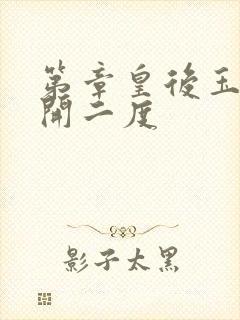 第章皇後玉
開二度
影子太黑